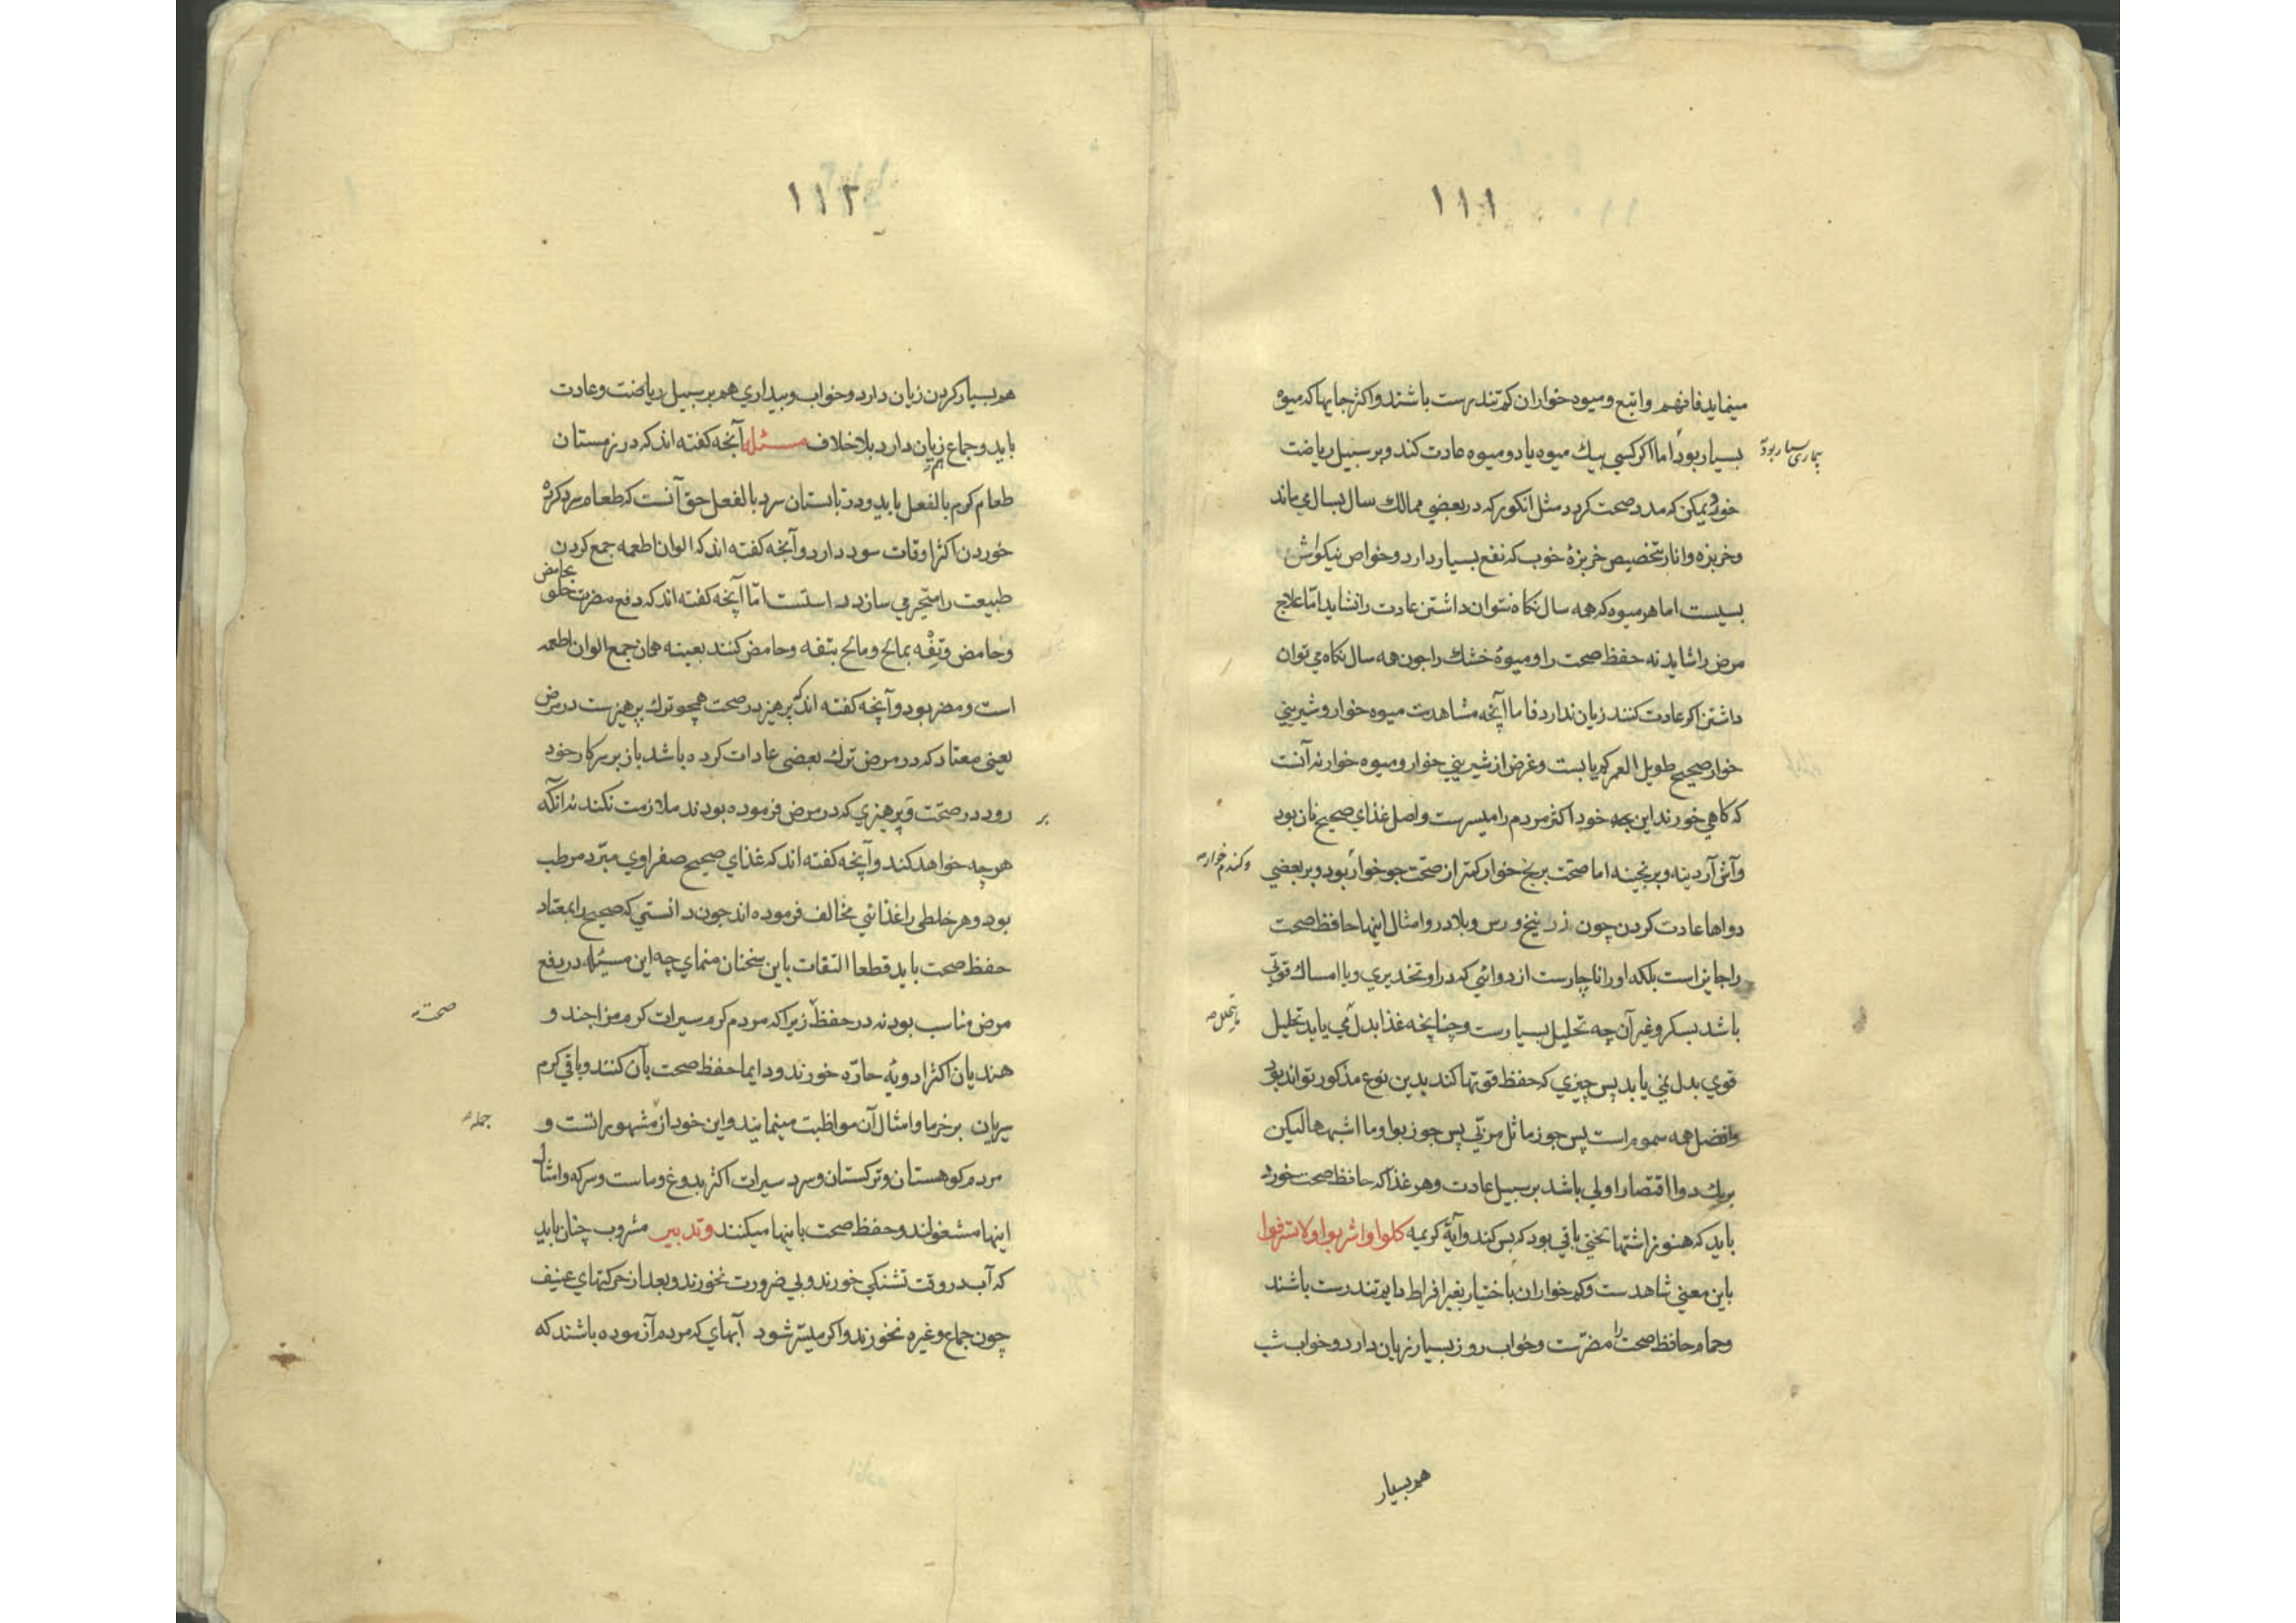 ١١١
مینماید فافهم واتبع ومیوه خواران کم تندرست باشند واکثر جایها که میوه
بسیار بود اما اکر کسی بیك میوه یا دو میوه عادت کند وبر سبیل ریاضت
بیماری بسیار بود
خورد یمکن که مدد صحت کردد مثل انکور که در بعضی ممالك سال بسال می ماند
وخربزه وانار بتخصیص خربزۀ خوب که نفع بسیار دارد وخواص نیکواش
بسیست اما هر میوه که همه سال نکاه نتوان داشتن عادت را نشاید امّا علاج
مرض را شاید نه حفظ صحت را ومیوۀ خشك را جون همه سال نکاه می توان
داشتن اکر عادت کنند زیان ندارد فاما آنچه مشاهدست میوه خوار وشیرینی
خوار صحیح طویل العمر کم یابست وغرض از شیرینی خوار ومیوه خوار نه آنست
که کاهی خورند این بجه خود اکثر مردم را میسرست واصل غذای صحیح نان بود
وآش آردینه وبرنجینه اما صحت برنج خوار کمتر از صحّت جو خوار بود وبر بعضی
وکندم خوار
دواها عادت کردن چون زرنیخ ورس وبلادر وامثال اینها حافظ صحت
را جایز است بلکه او را ناچارست از دوائی که در او تخدیری ویا امساك قوتی
باشد بسکر وغیر آن چه تحلیل بسیارست وچنانچه غذا بدل می یابد تحلیل
ما یتحلل
قوی بدل نمی یابد پس چیزی که حفظ قوتها کند بدین نوع مذکور تواند بود
وافضل همه سموم است پس جوز ماثل مربّی پس جوز بوا وما اشبهها لیکن
بریك دوا اقتصار اولی باشد بر سبیل عادت وهر غذا که حافظ صحت خورد
باید که هنوز اشتها بخشی باقی بود که بس کند وآیۀ کریمه کلوا واشربوا ولا تسرفوا
باین معنی شاهدست وکم خواران باختیار بغیر افراط دایم تندرست باشند
وحمام حافظ صحت را مضرّت وخواب روز بسیار زیان دارد وخواب شب
هم بسیار
١١٢
هم بسیار کردن زیان دارد وخواب وبیداری هم بر سبیل ریاضت وعادت
باید وجماع هم زیان دارد بلا خلاف مسئله آنچه کفته اند که در زمستان
طعام کرم بالفعل باید ودر تابستان سرد بالفعل حق آنست که طعام سرد کرده
خوردن اکثر اوقات سود دارد وآنچه کفته اند که الوان اطعمه جمع کردن
طبیعت را متحیر می سازد راستست امّا آنچه کفته اند که دفع مضرت حلو بحامض
وحامض وتفه بمالح ومالح بتفه وحامض کنند بعینه همان جمع الوان اطعمه
است ومضر بود وآنچه کفته اند که پرهیز در صحت همچو ترك پرهیزست در مرض
یعنی معتاد که در مرض ترك بعضی عادات کرده باشد باز بر سر کار خود
رود در صحّت وبر پرهیزی که در مرض فرموده بودند ملازمت نکند نه انکه
هر چه خواهد کند وآنچه کفته اند که غذای صحیح صفراوی مبرّد مرطب
بود وهر خلطی را غذائی مخالف فرموده اند جون دانستی که صحیح را بمعتاد
حفظ صحت باید قطعا التفات باین سخنان منمای چه این مسئله در دفع
مرض مناسب بود نه در حفظ زیرا که مردم کرم سیرات کرم مزاجند و
صحت
هندیان اکثر ادویۀ حارّه خورند ودایما حفظ صحت بآن کنند وباقی کرم
سیریان بر خرما وامثال آن مواظبت مینمایند واین خود از مشهوراتست و
جمله
مردم کوهستان وترکستان وسرد سیرات اکثر بدوغ وماست وسرکه وامثال
اینها مشغولند وحفظ صحت باینها میکنند وتدبیر مشروب چنان باید
که آب در وقت تشنکی خورند وبی ضرورت نخورند وبعد از حرکتهای عنیف
چون جماع وغیره نخورند واکر میسّر شود آبهای که مردم آزموده باشند که